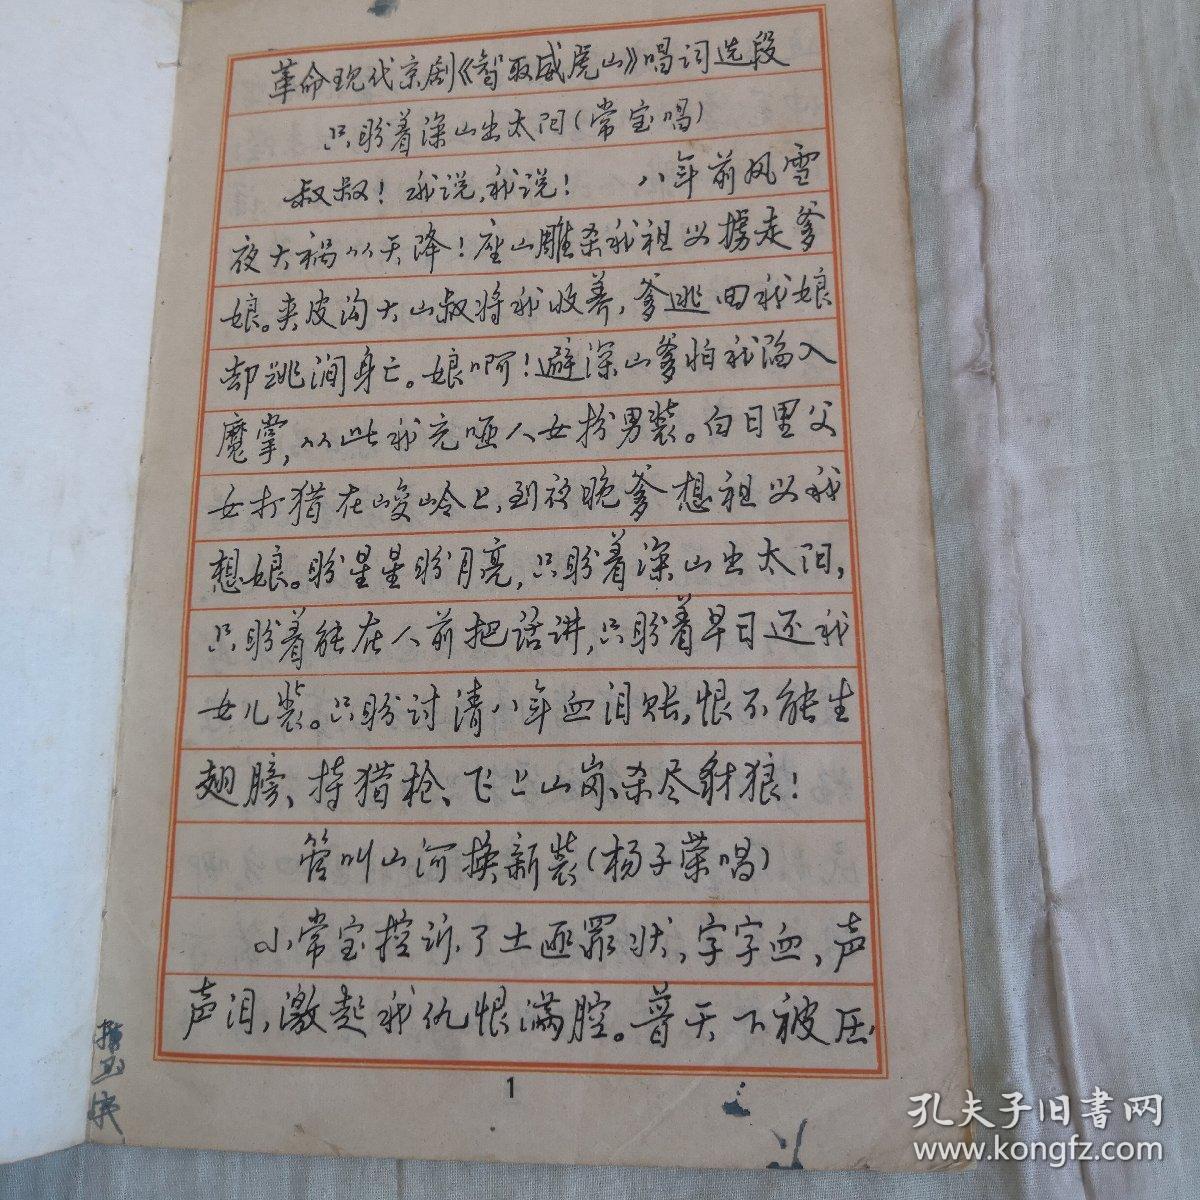 革命现代京剧《智取威虎山》唱词选段
只盼着深山出太阳(常宝唱)
叔叔!我说,我说! 八年前风雪
夜大祸从天降!座山雕杀我祖父掳走爹
娘。夹皮沟大山叔将我收养,爹逃回我娘
却跳涧身亡。娘啊!避深山爹怕我陷入
魔掌,从此我充哑人女扮男装。白日里父
女打猎在峻岭上,到夜晚爹想祖父我
想娘。盼星星盼月亮,只盼着深山出太阳,
只盼着能在人前把话讲,只盼着早日还我
女儿装。只盼讨清八年血泪账,恨不能生
翅膀、持猎枪、飞上山岗杀尽豺狼!
管叫山河换新装(杨子荣唱)
小常宝控诉了土匪罪状,字字血,声
声泪,激起我仇恨满腔。普天下被压
1
孔夫子旧书网
www.kongfz.com